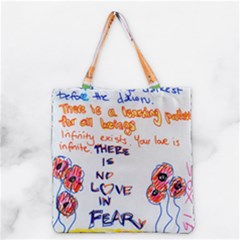 before the dawn.
There is a
for all beings
Infinity exists. Your love is
infinite.
THERE
IS
NO
LOVE
IN
FEAR.